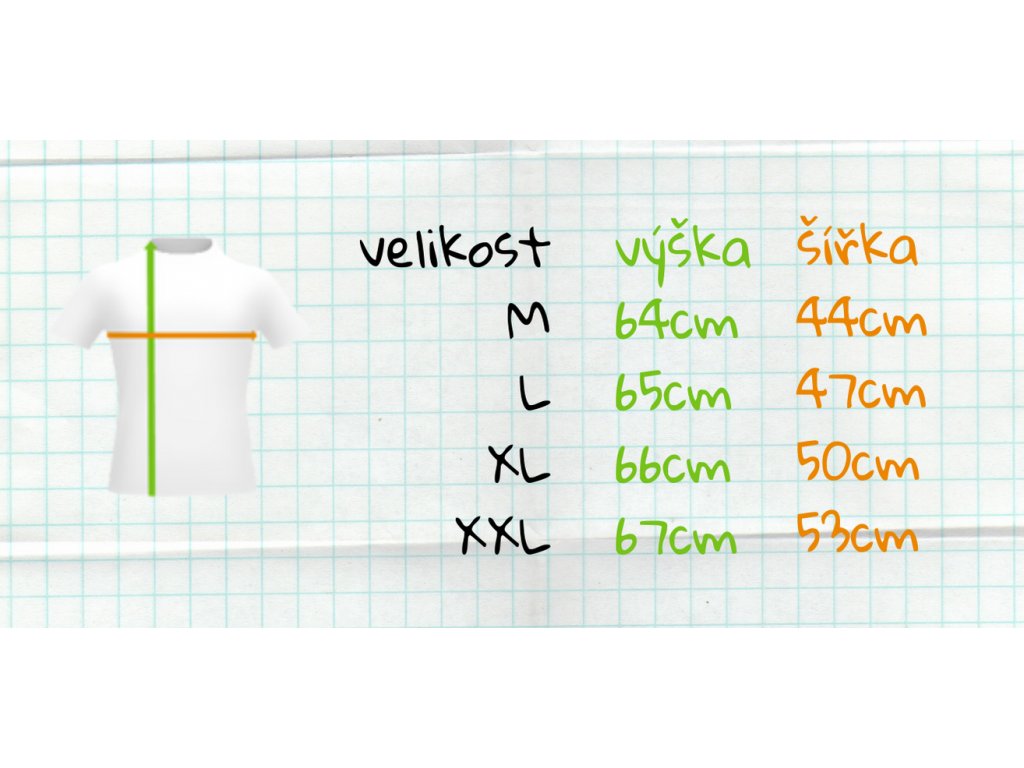 velikost výška šířka
M 64cm 44cm
L 65cm 47cm
XL 66cm 50cm
XXL 67cm 53cm